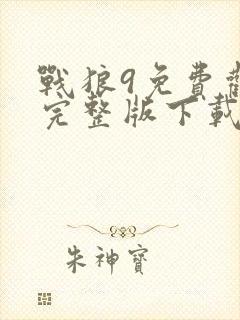 戰狼9免費觀
完整版下載
朱神寶